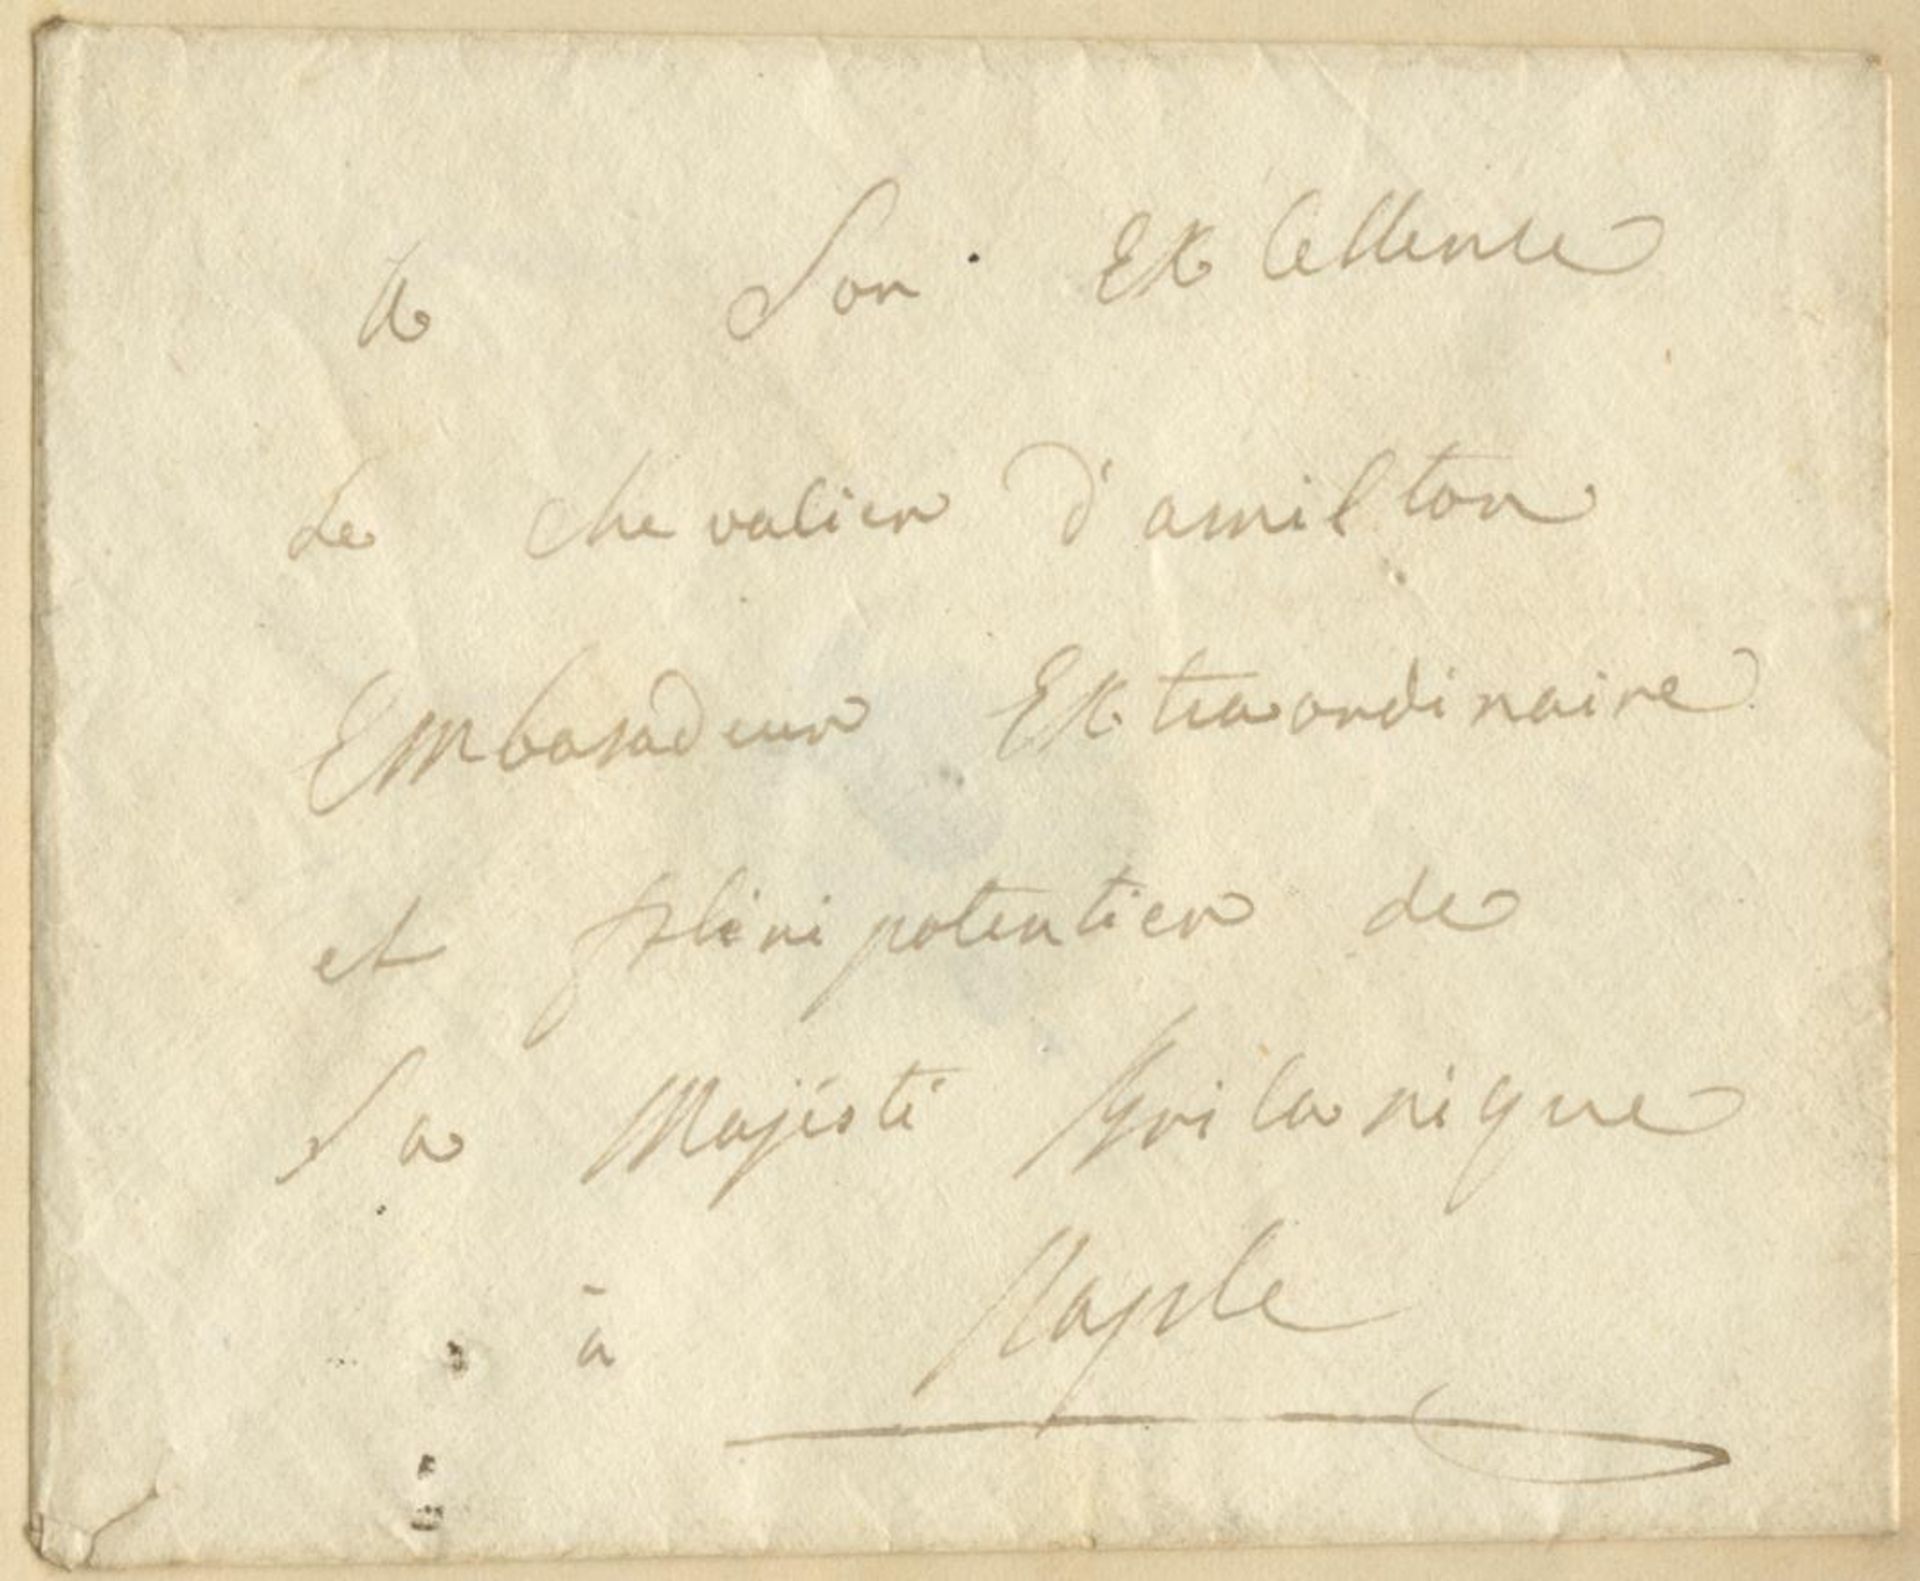 A Son Excellence
Le chevalier d'amilton
Embasadeur Extraordinaire
et plini potentier de
Sa Majesté Britanique
à Naple